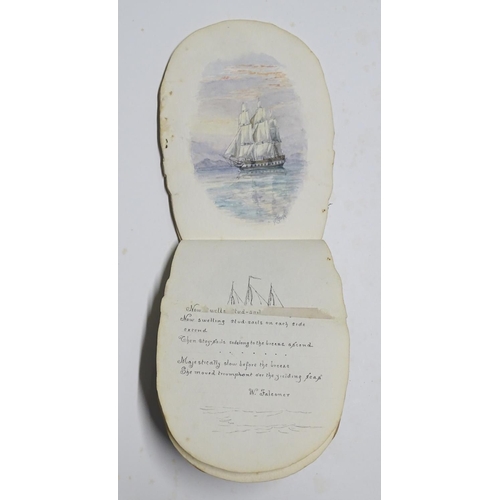 Now swelling stud-sails on each side
extend
Then stay-sails sidelong to the breeze ascend
Majestically slow before the breeze
She moved triumphant o'er the yielding seas
W. Falconer